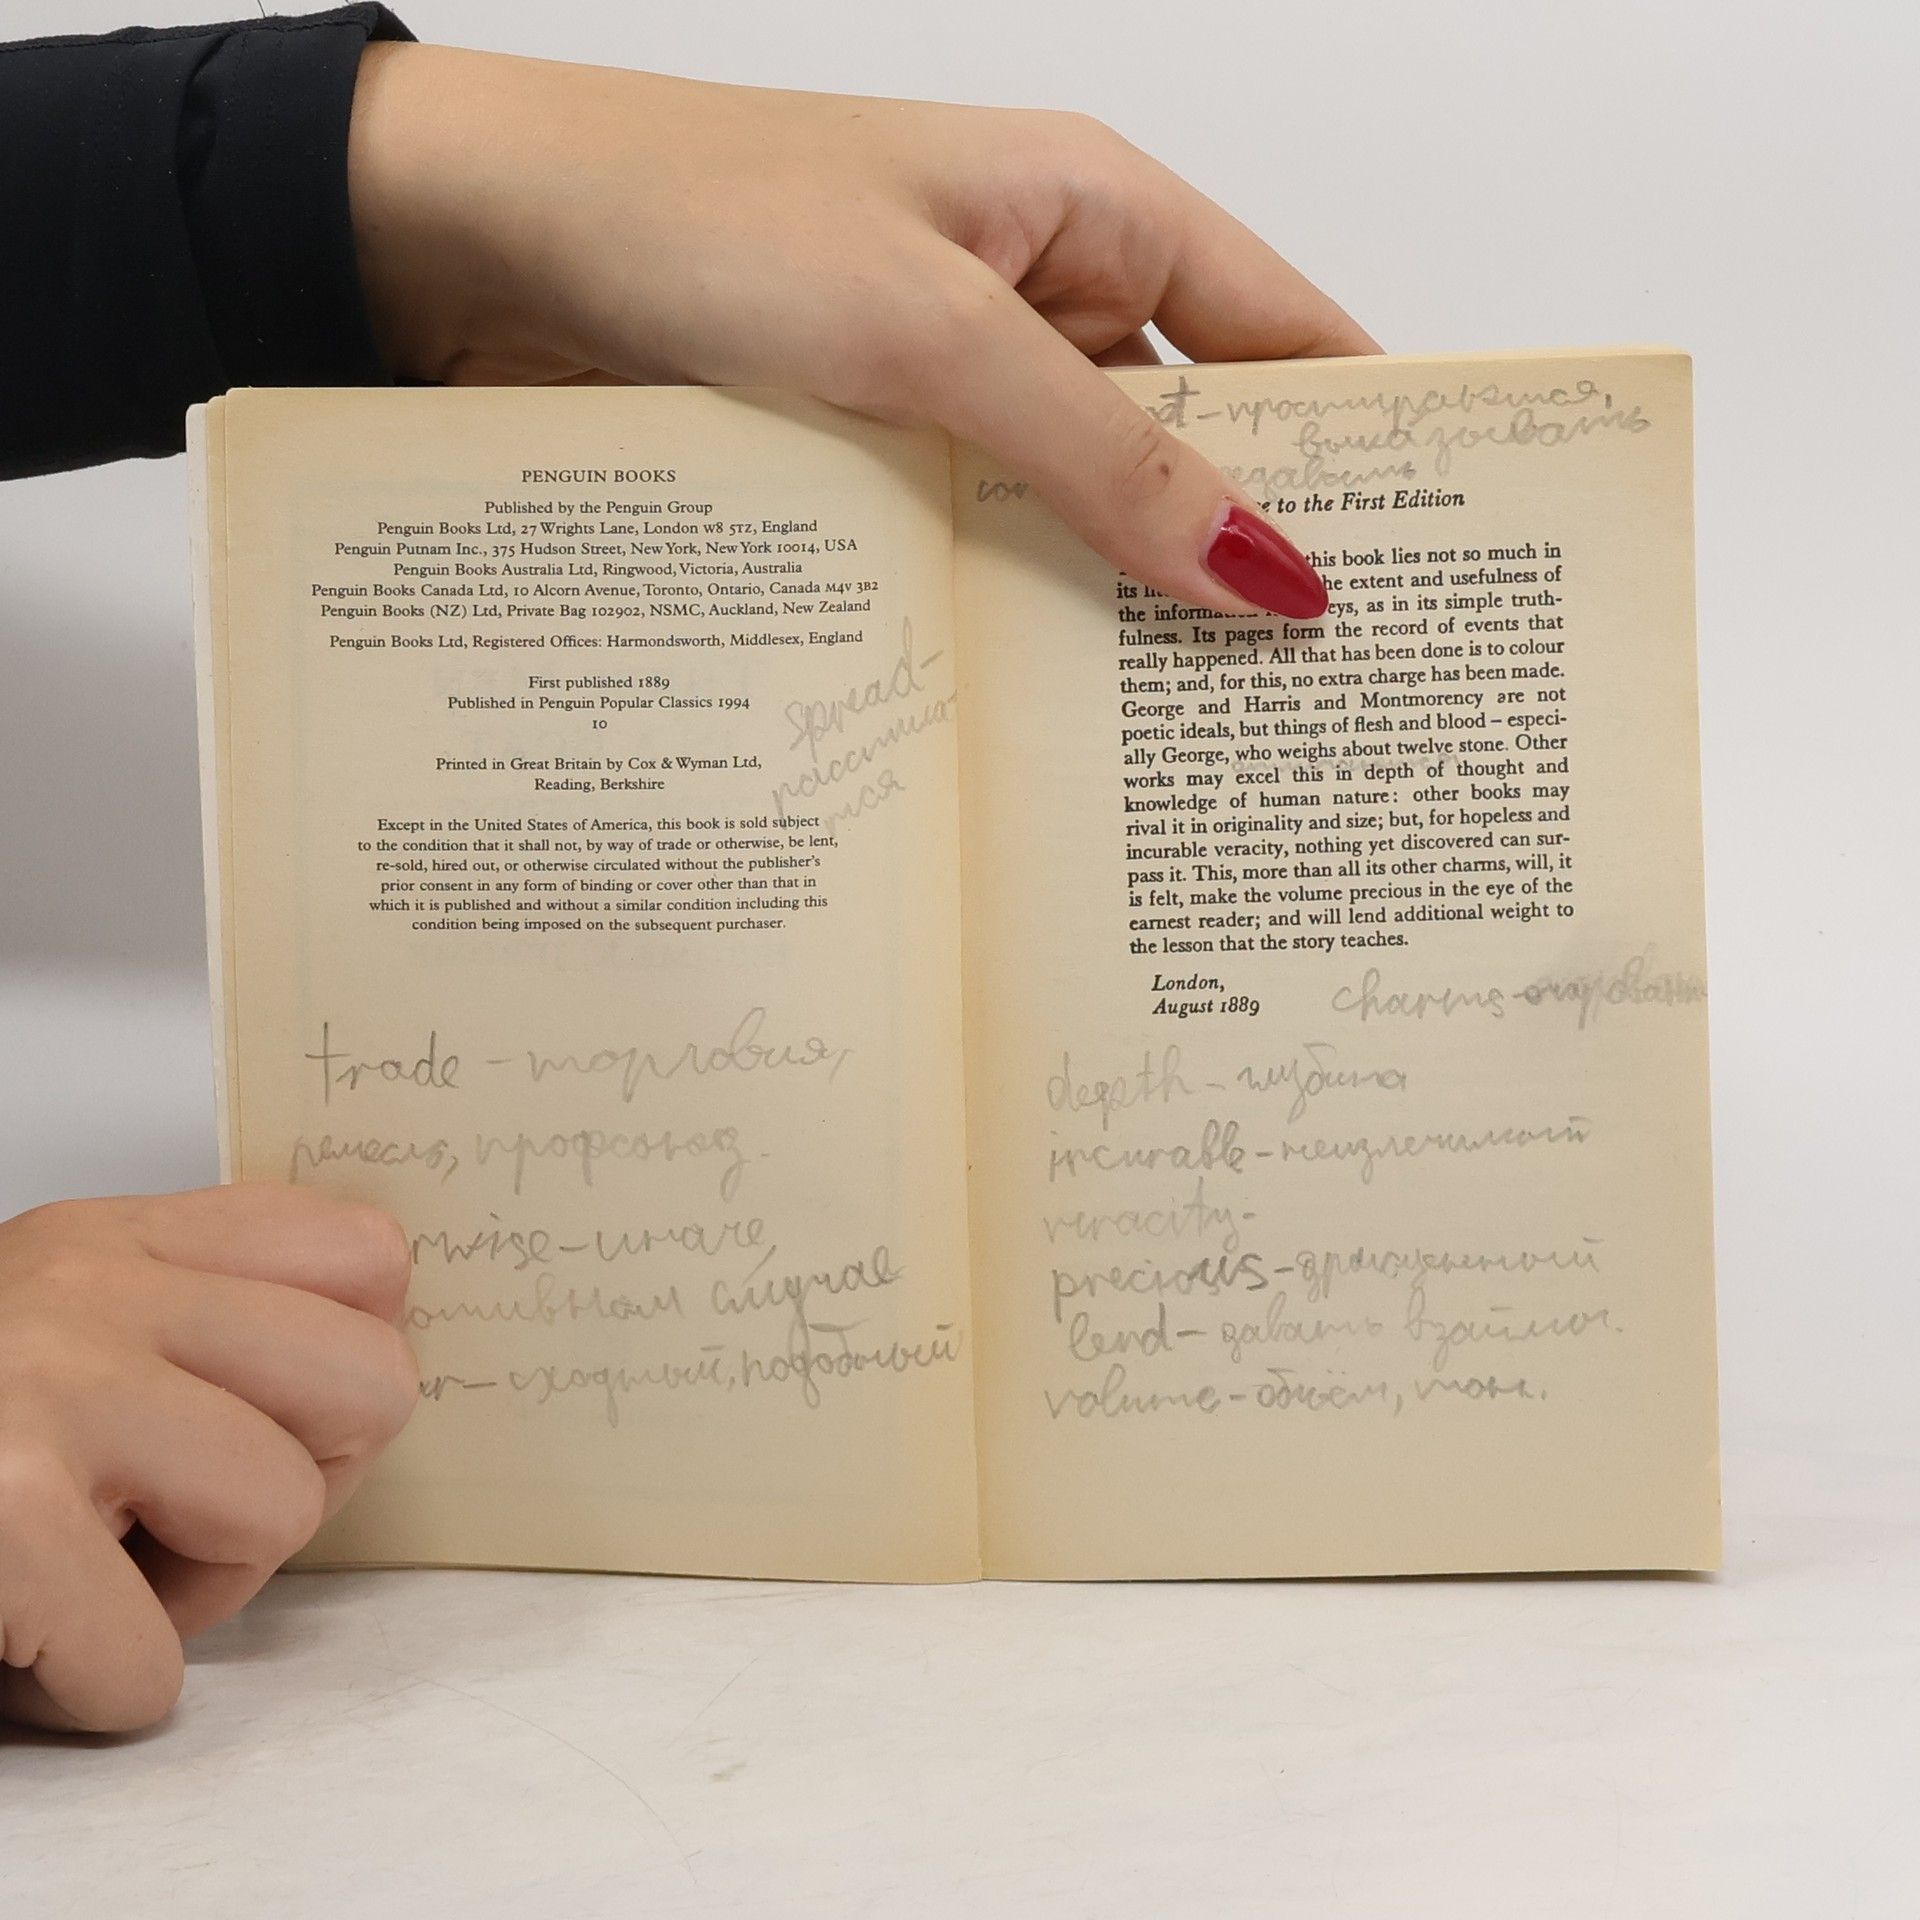 PENGUIN BOOKS
Published by the Penguin Group
Penguin Books Ltd, 27 Wrights Lane, London W8 5TZ, England
Penguin Putnam Inc., 375 Hudson Street, New York, New York 10014, USA
Penguin Books Australia Ltd, Ringwood, Victoria, Australia
Penguin Books Canada Ltd, 10 Alcorn Avenue, Toronto, Ontario, Canada M4V 3B2
Penguin Books (NZ) Ltd, Private Bag 102902, NSMC, Auckland, New Zealand
Penguin Books Ltd, Registered Offices: Harmondsworth, Middlesex, England
First published 1889
Published in Penguin Popular Classics 1994
10
Printed in Great Britain by Cox & Wyman Ltd,
Reading, Berkshire
spread-
Except in the United States of America, this book is sold subject
to the condition that it shall not, by way of trade or otherwise, be lent,
re-sold, hired out, or otherwise circulated without the publisher's
prior consent in any form of binding or cover other than that in
which it is published and without a similar condition including this
condition being imposed on the subsequent purchaser.
trade - торговля,
профсоюз.
иначе,
случае
сходный, подобный
to the First Edition
this book lies not so much in
its the extent and usefulness of
the as in its simple truth-
fulness. Its pages form the record of events that
really happened. All that has been done is to colour
them; and, for this, no extra charge has been made.
George and Harris and Montmorency are not
poetic ideals, but things of flesh and blood – especi-
ally George, who weighs about twelve stone. Other
works may excel this in depth of thought and
knowledge of human nature: other books may
rival it in originality and size; but, for hopeless and
incurable veracity, nothing yet discovered can sur-
pass it. This, more than all its other charms, will, it
is felt, make the volume precious in the eye of the
earnest reader; and will lend additional weight to
the lesson that the story teaches.
London,
August 1889
charms-
depth - глубина
incurable - неизлечимый
veracity-
precious - драгоценный
lend - давать взаймы.
volume - объём, том.